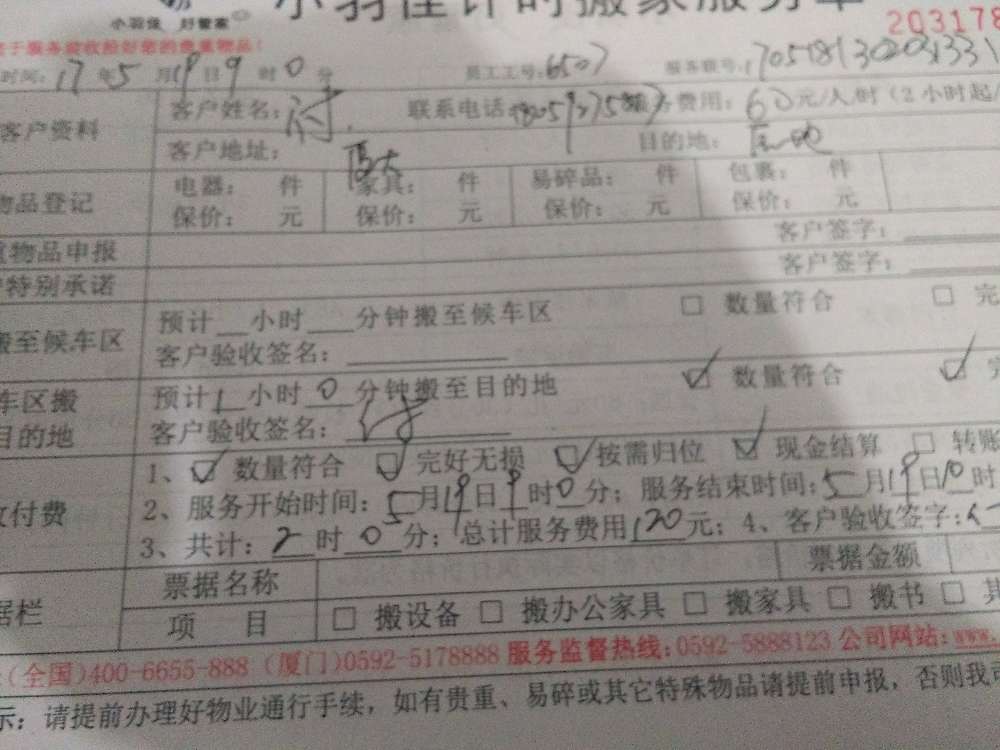 小羽佳计时搬家服务单
小羽佳 好管家
203178
于服务前收捡好您的贵重物品！
时间：17年5月19日9时0分 员工工号：6507 服务联号：
客户资料 客户姓名： 联系电话： 服务费用：60元/人/时（2小时起/
客户地址：厦大 目的地：
物品登记 电器： 件 家具： 件 易碎品： 件 包裹： 件
保价： 元 保价： 元 保价： 元 保价： 元
物品申报 客户签字：
特别承诺 客户签字：
搬至候车区 预计 小时 分钟搬至候车区 □ 数量符合 □ 完
客户验收签名：
车区搬 预计1小时0分钟搬至目的地 ☑ 数量符合 ☑ 完
目的地 客户验收签名：
付费 1、☑ 数量符合 ☑ 完好无损 ☑ 按需归位 ☑ 现金结算 □ 转账
2、服务开始时间：5月19日9时0分；服务结束时间：5月19日10时
3、共计：2时0分；总计服务费用120元；4、客户验收签字：
据栏 票据名称 票据金额
项 目 □ 搬设备 □ 搬办公家具 □ 搬家具 □ 搬书 □ 其
（全国）400-6655-888（厦门）0592-5178888 服务监督热线：0592-5888123 公司网站：www.
示：请提前办理好物业通行手续，如有贵重、易碎或其它特殊物品请提前申报，否则我司